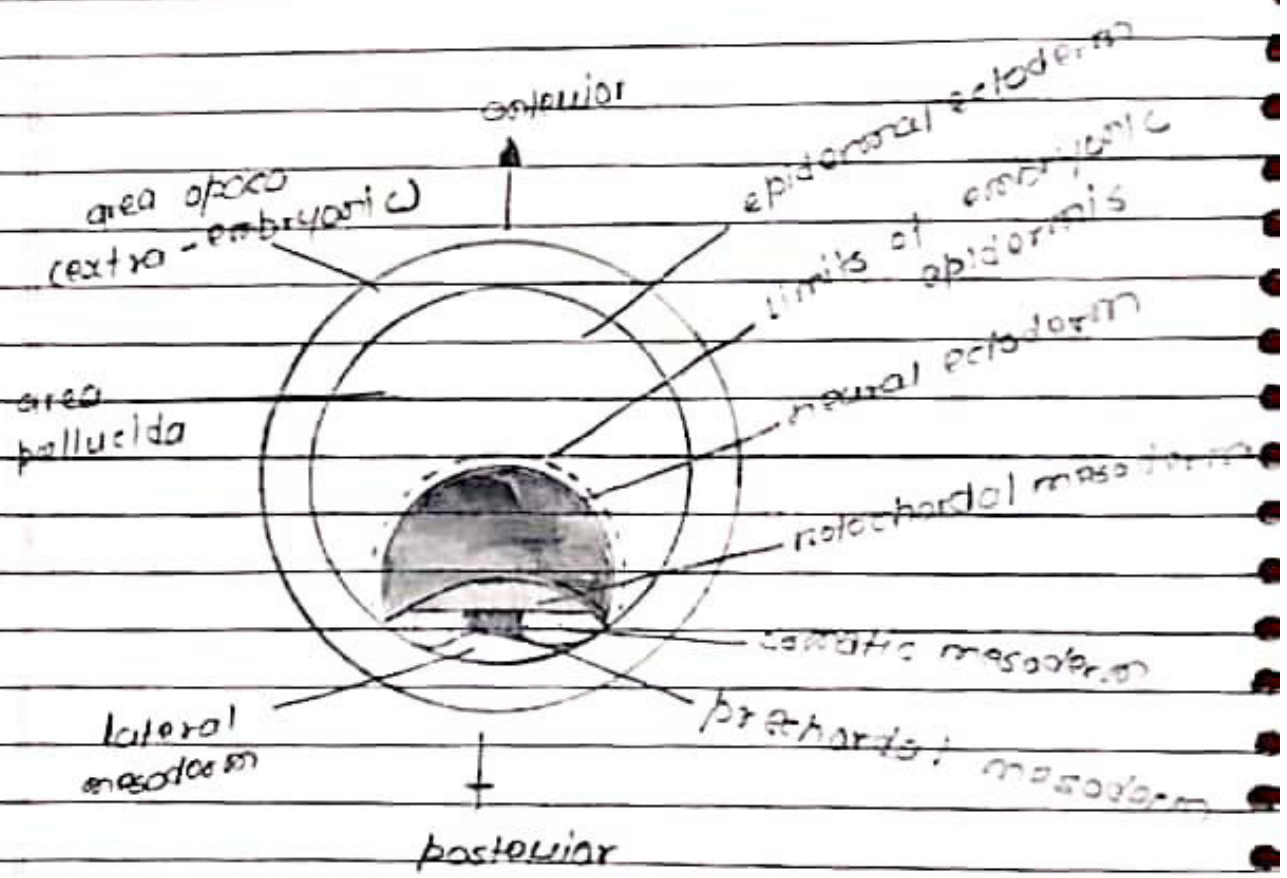 anterior
area opaca
(extra-embryonic)
epidermal ectoderm
limits of embryonic
epidermis
neural ectoderm
area
pellucida
notochordal mesoderm
somatic mesoderm
prechordal mesoderm
lateral
mesoderm
posterior